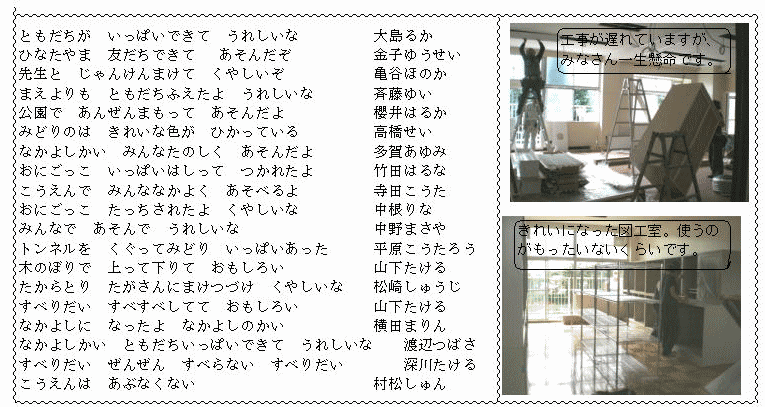 ともだちが　いっぱいできて　うれしいな　大島るか
ひなたやま　友だちできて　あそんだぞ　金子ゆうせい
先生と　じゃんけんまけて　くやしいぞ　亀谷ほのか
まえよりも　ともだちふえたよ　うれしいな　斉藤ゆい
公園で　あんぜんまもって　あそんだよ　櫻井はるか
みどりのは　きれいな色が　ひかっている　高橋せい
なかよしかい　みんなたのしく　あそんだよ　多賀あゆみ
おにごっこ　いっぱいはしって　つかれたよ　竹田はるな
こうえんで　みんななかよく　あそべるよ　寺田こうた
おにごっこ　たっちされたよ　くやしいな　中根りな
みんなで　あそんで　うれしいな　中野まさや
トンネルを　くぐってみどり　いっぱいあった　平原こうたろう
木のぼりで　上って下りて　おもしろい　山下たける
たからとり　たがさんにまけつづけ　くやしいな　松崎しゅうじ
すべりだい　すべすべしてて　おもしろい　山下たける
なかよしに　なったよ　なかよしのかい　横田まりん
なかよしかい　ともだちいっぱいできて　うれしいな　渡辺つばさ
すべりだい　ぜんぜん　すべらない　すべりだい　深川たける
こうえんは　あぶなくない　村松しゅん
工事が遅れていますが、
みなさん一生懸命です。
きれいになった図工室。使うの
がもったいないくらいです。